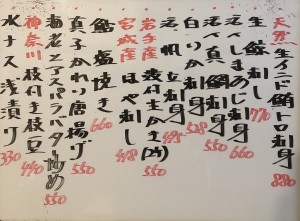 天然 生インド鮪トロ刺身 880
生鯵刺し 770
活〆しまあじ刺身 660
活〆真鯛刺し 550
白いか刺身 528
活帆立刺身 495
岩手産 殻付生かき(2ヶ) 550
宮城産 ほや刺し 418
鮎塩焼き 660
真子かれい唐揚げ 550
海老とアスパラバター炒め 550
神奈川 枝付き枝豆 440
水ナス浅漬け 330